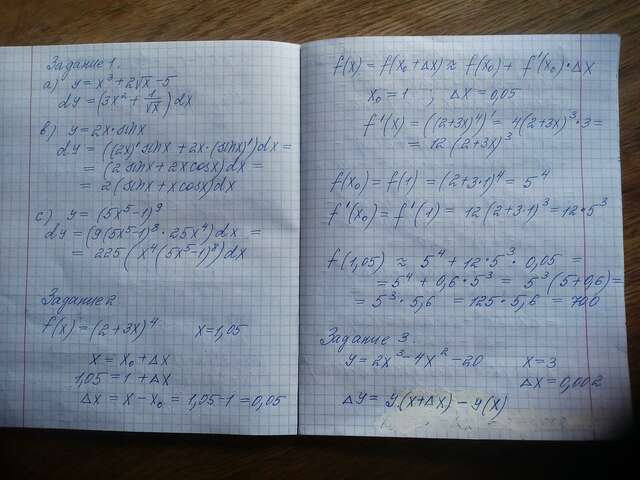 Задание 1.
а) y = x³ + 2√x - 5
dy = (3x² + 1/√x) dx
в) y = 2x · sinx
dy = ((2x)' sinx + 2x · (sinx)') dx =
= (2 sinx + 2x cosx) dx =
= 2 (sinx + x cosx) dx
с) y = (5x⁵ - 1)⁹
dy = (9(5x⁵-1)⁸ · 25x⁴) dx =
= 225 (x⁴ (5x⁵-1)⁸) dx
Задание 2
f(x) = (2+3x)⁴ x = 1,05
x = x₀ + Δx
1,05 = 1 + Δx
Δx = x - x₀ = 1,05 - 1 = 0,05
f(x) = f(x₀ + Δx) ≈ f(x₀) + f'(x₀) · Δx
x₀ = 1 ; Δx = 0,05
f'(x) = ((2+3x)⁴)' = 4(2+3x)³ · 3 =
= 12 (2+3x)³
f(x₀) = f(1) = (2+3·1)⁴ = 5⁴
f'(x₀) = f'(1) = 12(2+3·1)³ = 12·5³
f(1,05) ≈ 5⁴ + 12·5³ · 0,05 =
= 5⁴ + 0,6·5³ = 5³(5+0,6) =
= 5³ · 5,6 = 125 · 5,6 = 700
Задание 3.
y = 2x³ - 4x² - 20 x = 3
Δx = 0,002
Δy = y(x+Δx) - y(x)